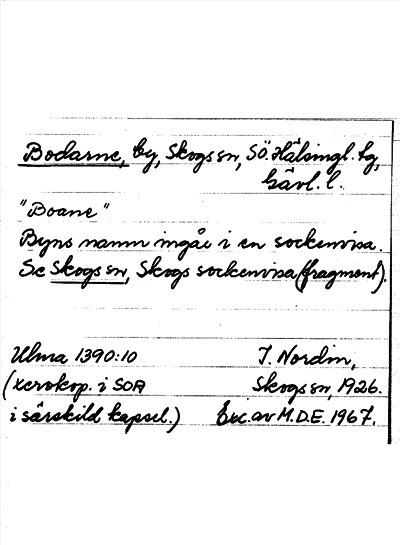 Bodarne, by, Skogs sn, Sö. Hälsingl. tg,
Gävl. l.
"Boane"
Byns namn ingår i en sockenvisa.
Se Skogs sn, Skogs sockenvisa (fragment).
Ulma 1390:10
(xerokop. i SOA
i särskild kapsel.)
J. Nordin,
Skogs sn, 1926.
Exc. av M.D.E. 1967.